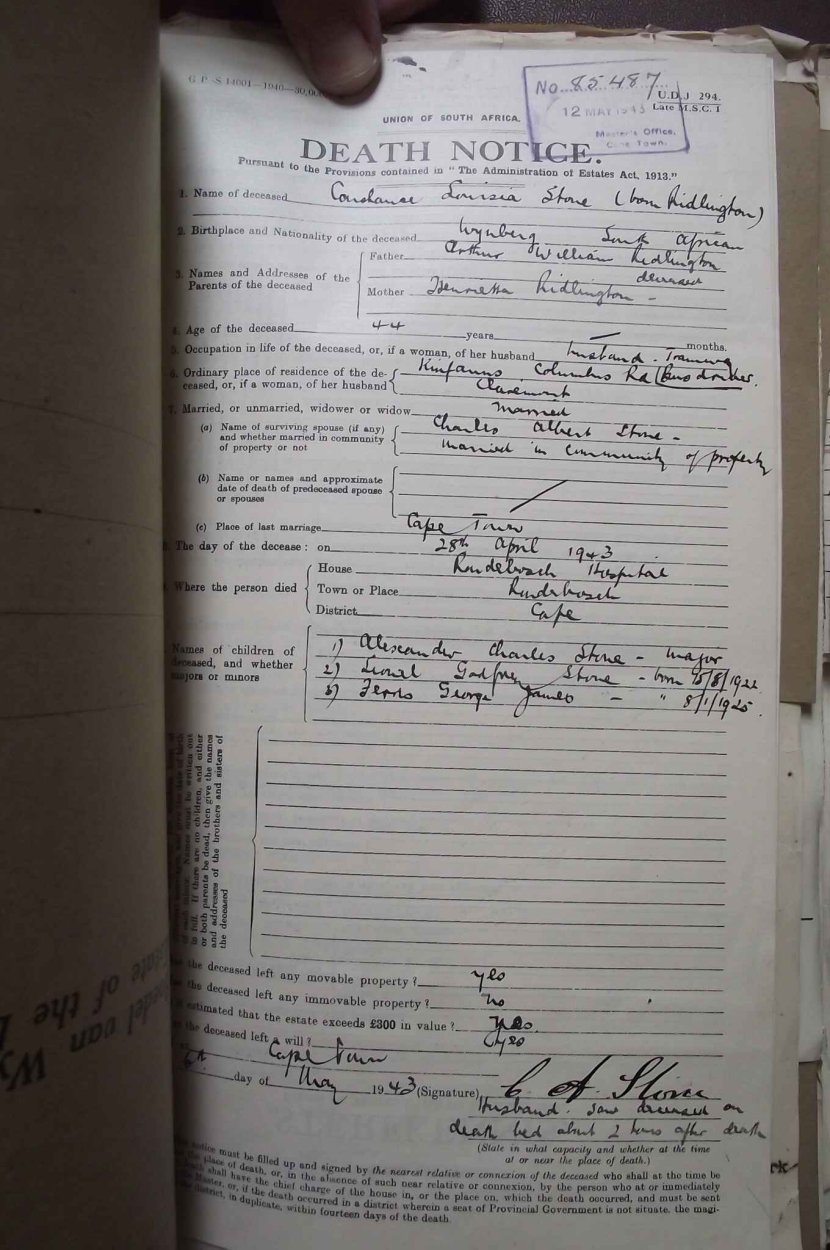 G.P.-S.14001—1940—30,00
No. 85487
12 MAY 1943
Master's Office,
Cape Town.
U.D.J. 294.
Late M.S.C. 1
UNION OF SOUTH AFRICA.
DEATH NOTICE.
Pursuant to the Provisions contained in "The Administration of Estates Act, 1913."
1. Name of deceased Constance Louisia Stone (born Ridlington)
2. Birthplace and Nationality of the deceased Wynberg South African
3. Names and Addresses of the Parents of the deceased
Father Arthur William Ridlington
deceased
Mother Henrietta Ridlington -
4. Age of the deceased 44 years — months.
5. Occupation in life of the deceased, or, if a woman, of her husband husband - Tramway
(Bus driver.
6. Ordinary place of residence of the de-
ceased, or, if a woman, of her husband
Kinfauns Columbus Rd
Claremont
7. Married, or unmarried, widower or widow married
(a) Name of surviving spouse (if any)
and whether married in community
of property or not
Charles Albert Stone -
married in community of property
(b) Name or names and approximate
date of death of predeceased spouse
or spouses
(c) Place of last marriage Cape Town
The day of the decease: on 28th April 1943
Where the person died
House Rondebosch Hospital
Town or Place Rondebosch
District Cape
Names of children of
deceased, and whether
majors or minors
1) Alexander Charles Stone - major
2) Lionel Godfrey Stone - born 5/8/1922
3) Ferris George James - " 8/1/1925.
in full. If there are no children, and either
or both parents be dead, then give the names
and addresses of the brothers and sisters of
the deceased
the deceased left any movable property? yes
the deceased left any immovable property? no
estimated that the estate exceeds £300 in value? yes.
the deceased left a will? yes
Cape Town
6th day of May 1943 (Signature) C A Stone
Husband. saw deceased on
death bed about 2 hours after death
(State in what capacity and whether at the time
at or near the place of death.)
notice must be filled up and signed by the nearest relative or connexion of the deceased who shall at the time be
the place of death, or, in the absence of such near relative or connexion, by the person who at or immediately
death shall have the chief charge of the house in, or the place on, which the death occurred, and must be sent
Master, or, if the death occurred in a district wherein a seat of Provincial Government is not situate, the magi-
district, in duplicate, within fourteen days of the death.